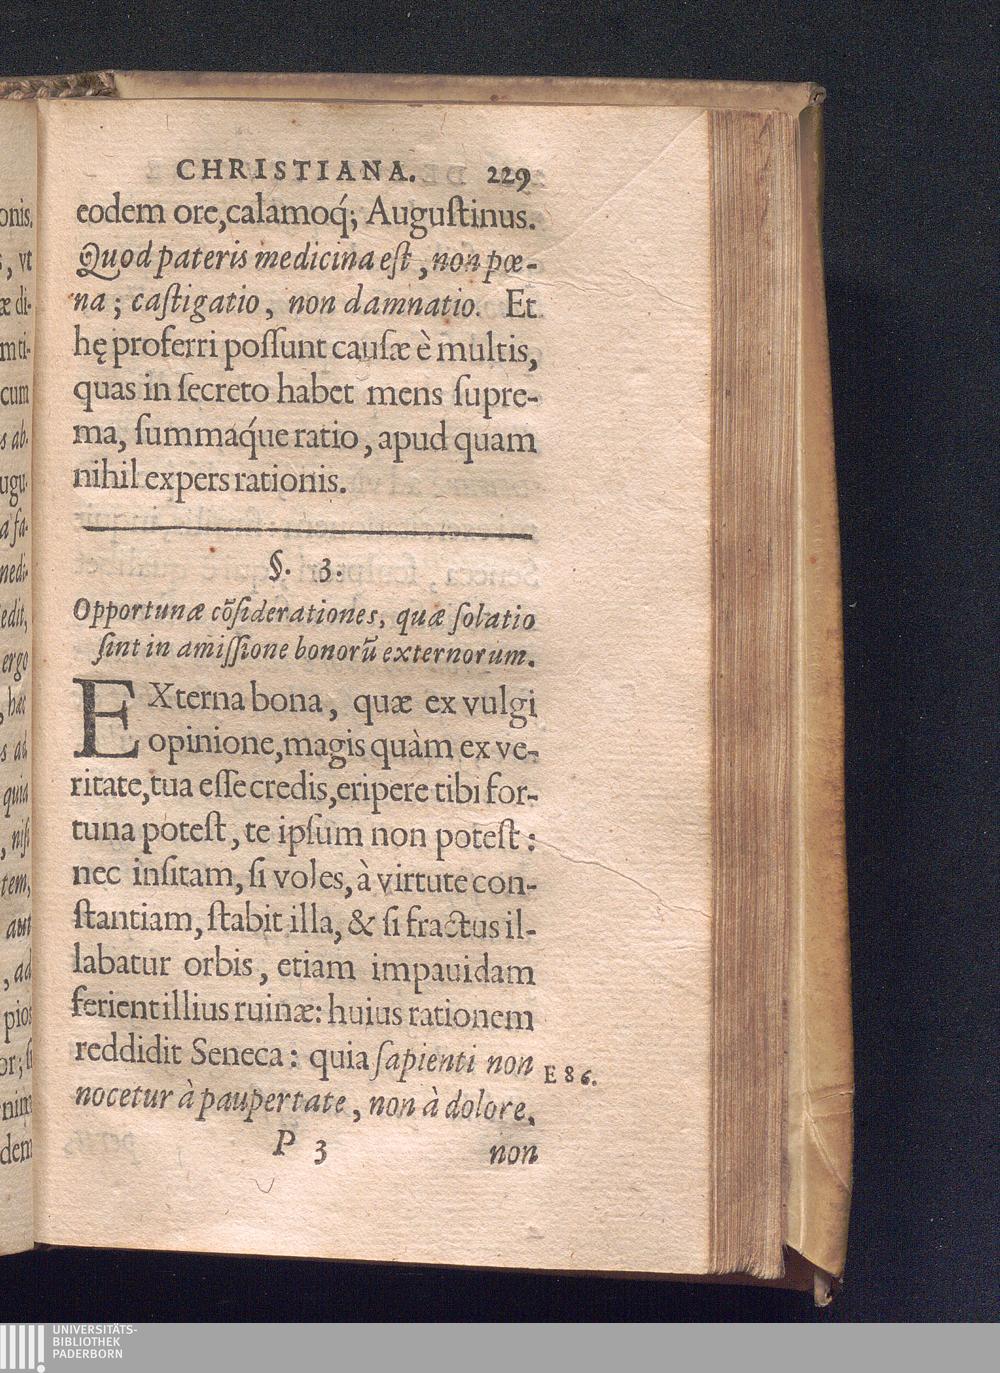 CHRISTIANA. 229
eodem ore,calamoq́; Auguſtinus.
Quod pateris medicina eſt, non pœ-
na; caſtigatio, non damnatio. Et
hę proferri poſſunt cauſæ è multis,
quas in ſecreto habet mens ſupre-
ma, ſummaq́ue ratio, apud quam
nihil expers rationis.
§. 3.
Opportunæ cõſiderationes, quæ ſolatio
ſint in amiſſione bonorũ externorum.
EXterna bona, quæ ex vulgi
opinione,magis quàm ex ve-
ritate,tua eſſe credis,eripere tibi for-
tuna poteſt, te ipſum non poteſt:
nec inſitam, ſi voles, à virtute con-
ſtantiam, ſtabit illa, & ſi fractus il-
labatur orbis, etiam impauidam
ferient illius ruinæ: huius rationem
reddidit Seneca: quia ſapienti non
E 86.
nocetur à paupertate, non à dolore,
P 3 non
onis.
, vt
æ di-
m ti-
cum
s ab-
ugu-
a fa-
nedi-
edit,
ergo
s ad
quia
, niſi
tem,
aut
, ad
pios
nim
dem
UNIVERSITÄTS-
BIBLIOTHEK
PADERBORN